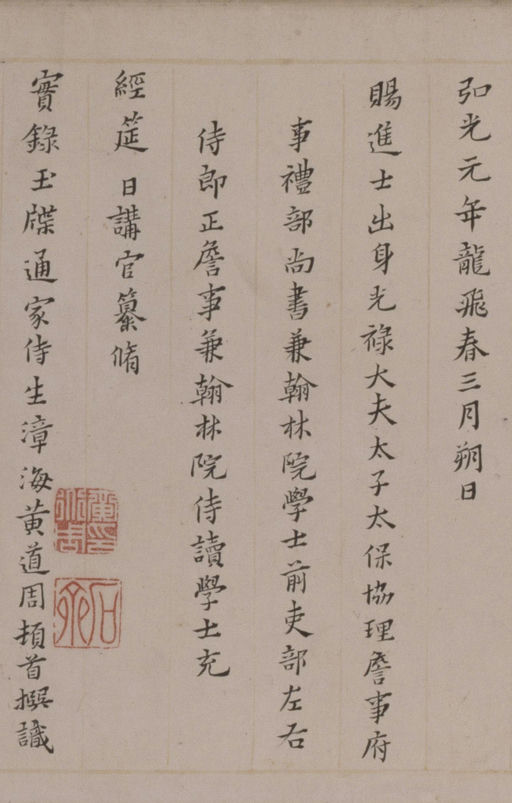 弘光元年龍飛春三月朔日
賜進士出身光祿大夫太子太保協理詹事府
事禮部尚書兼翰林院學士前吏部左右
侍郎正詹事兼翰林院侍讀學士充
經筵日講官纂脩
實錄玉牒通家侍生漳海黃道周頓首撰識
黃道周印
石齋